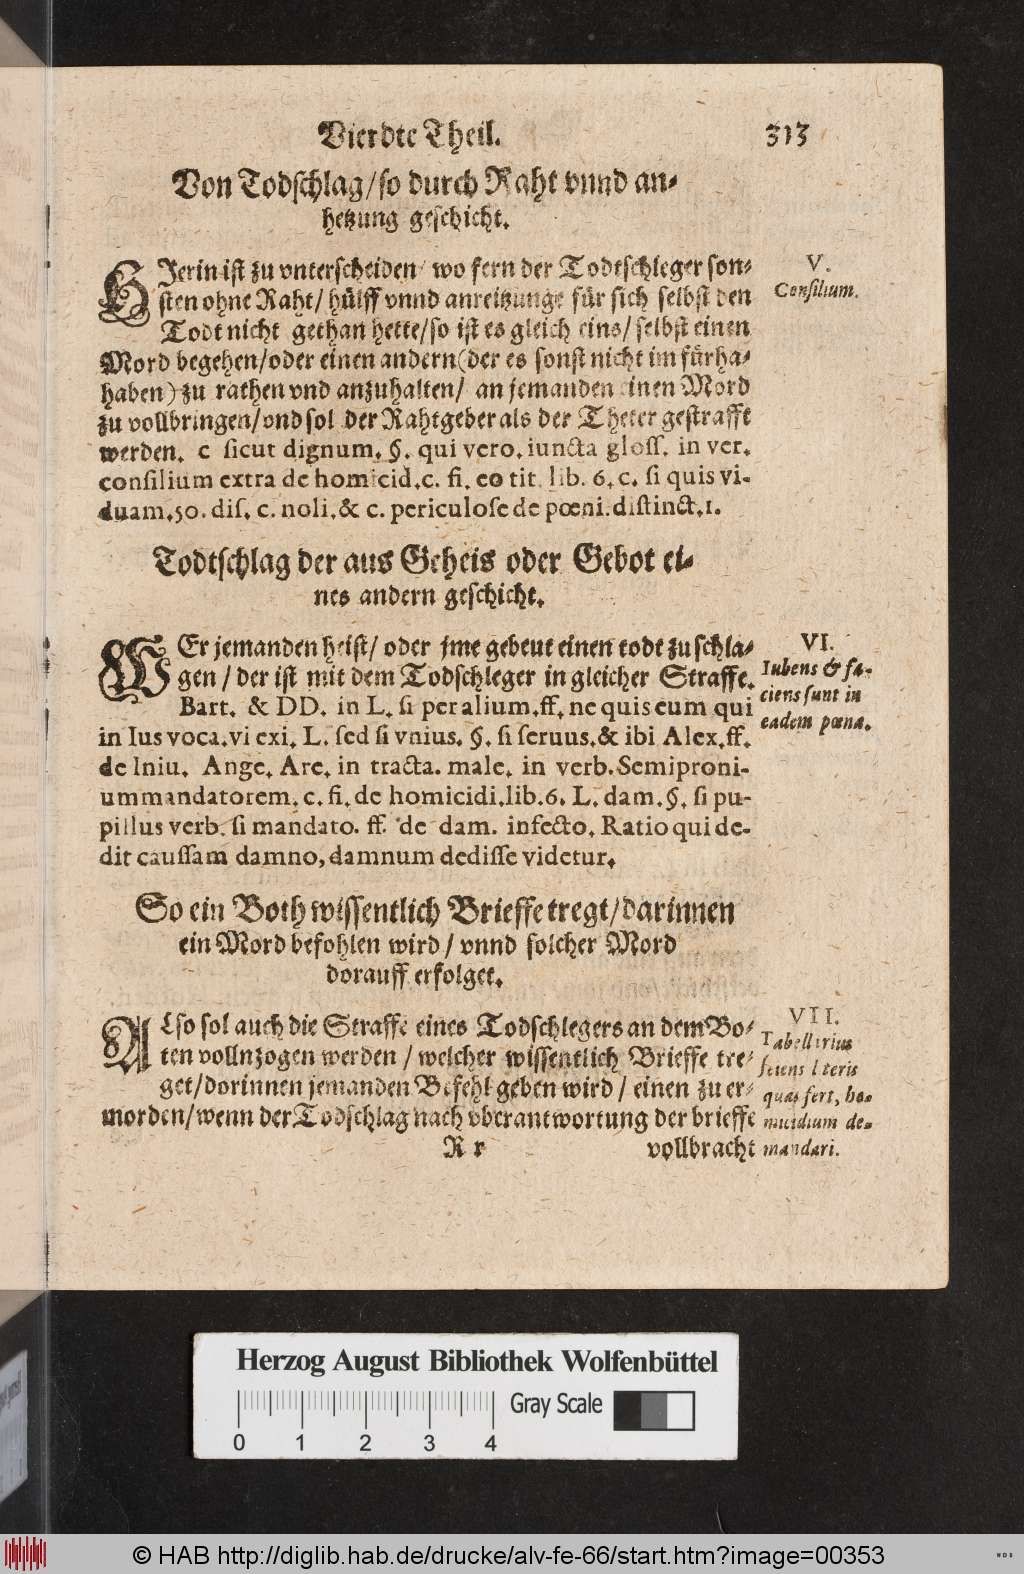 Vierdte Theil. 313
Von Todschlag/so durch Raht vnnd an-
hetzung geschicht.
HJerin ist zu vnterscheiden/ wo fern der Todtschleger son-
sten ohne Raht/ hülff vnnd anreitzunge für sich selbst den
Todt nicht gethan hette/so ist es gleich eins/ selbst einen
Mord begehen/oder einen andern(der es sonst nicht im fürha-
haben) zu rathen vnd anzuhalten/ an jemanden einen Mord
zu vollbringen/vnd sol der Rahtgeber als der Theter gestrafft
werden. c sicut dignum. §. qui vero. iuncta gloss. in ver.
consilium extra de homicid.c. fi. eo tit. lib. 6. c. si quis vi-
duam.50. dis. c. noli.& c. periculose de pœni.distinct.1.
V.
Consilium.
Todtschlag der aus Geheis oder Gebot ei-
nes andern geschicht.
WEr jemanden heist/ oder jme gebeut einen todt zu schla-
gen/ der ist mit dem Todschleger in gleicher Straffe.
Bart. & DD. in L. si per alium.ff. ne quis eum qui
in Ius voca.vi exi. L. sed si vnius. §. si seruus.& ibi Alex.ff.
de Iniu. Ange. Are. in tracta. male. in verb. Semiproni-
um mandatorem. c. fi. de homicidi.lib.6. L. dam.§. si pu-
pillus verb. si mandato. ff. de dam. infecto. Ratio qui de-
dit caussam damno, damnum dedisse videtur.
VI.
Iubens & fa-
ciens sunt in
eadem pœna.
So ein Both wissentlich Brieffe tregt/darinnen
ein Mord befohlen wird/ vnnd solcher Mord
dorauff erfolget.
ALso sol auch die Straffe eines Todschlegers an dem Bo-
ten vollnzogen werden/ welcher wissentlich Brieffe tre-
get/dorinnen jemanden Befehl geben wird/ einen zu er-
morden/wenn der Todschlag nach vberantwortung der brieffe
R r vollbracht
VII.
Tabellarius
sciens literis
quas fert, ho-
micidium de-
mandari.
Herzog August Bibliothek Wolfenbüttel
Gray Scale
0 1 2 3 4
© HAB http://diglib.hab.de/drucke/alv-fe-66/start.htm?image=00353